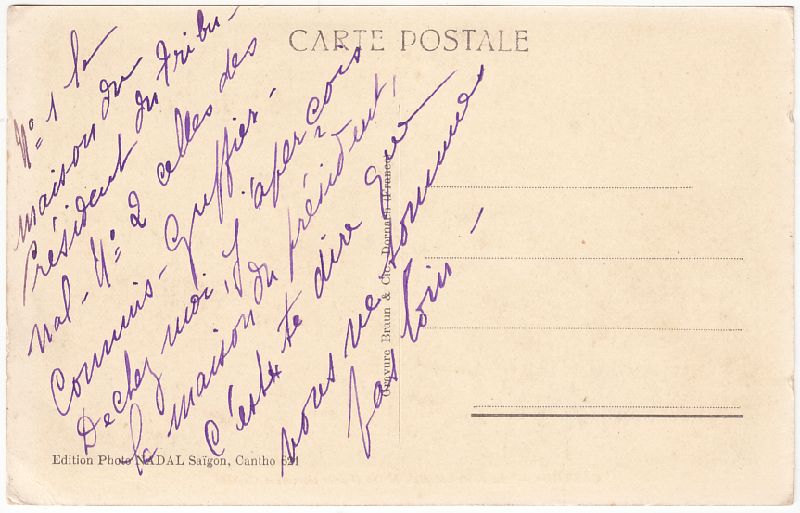 CARTE POSTALE
N° 1 la
maison du
Président du Tribu-
nal - N° 2 celles des
Commis - Greffier -
De chez moi, j'aperçois
la maison du président,
c'est te dire que
nous ne sommes
pas loin -
Gravure Braun & Cie, Dornach (France)
Edition Photo NADAL Saïgon, Cantho 621